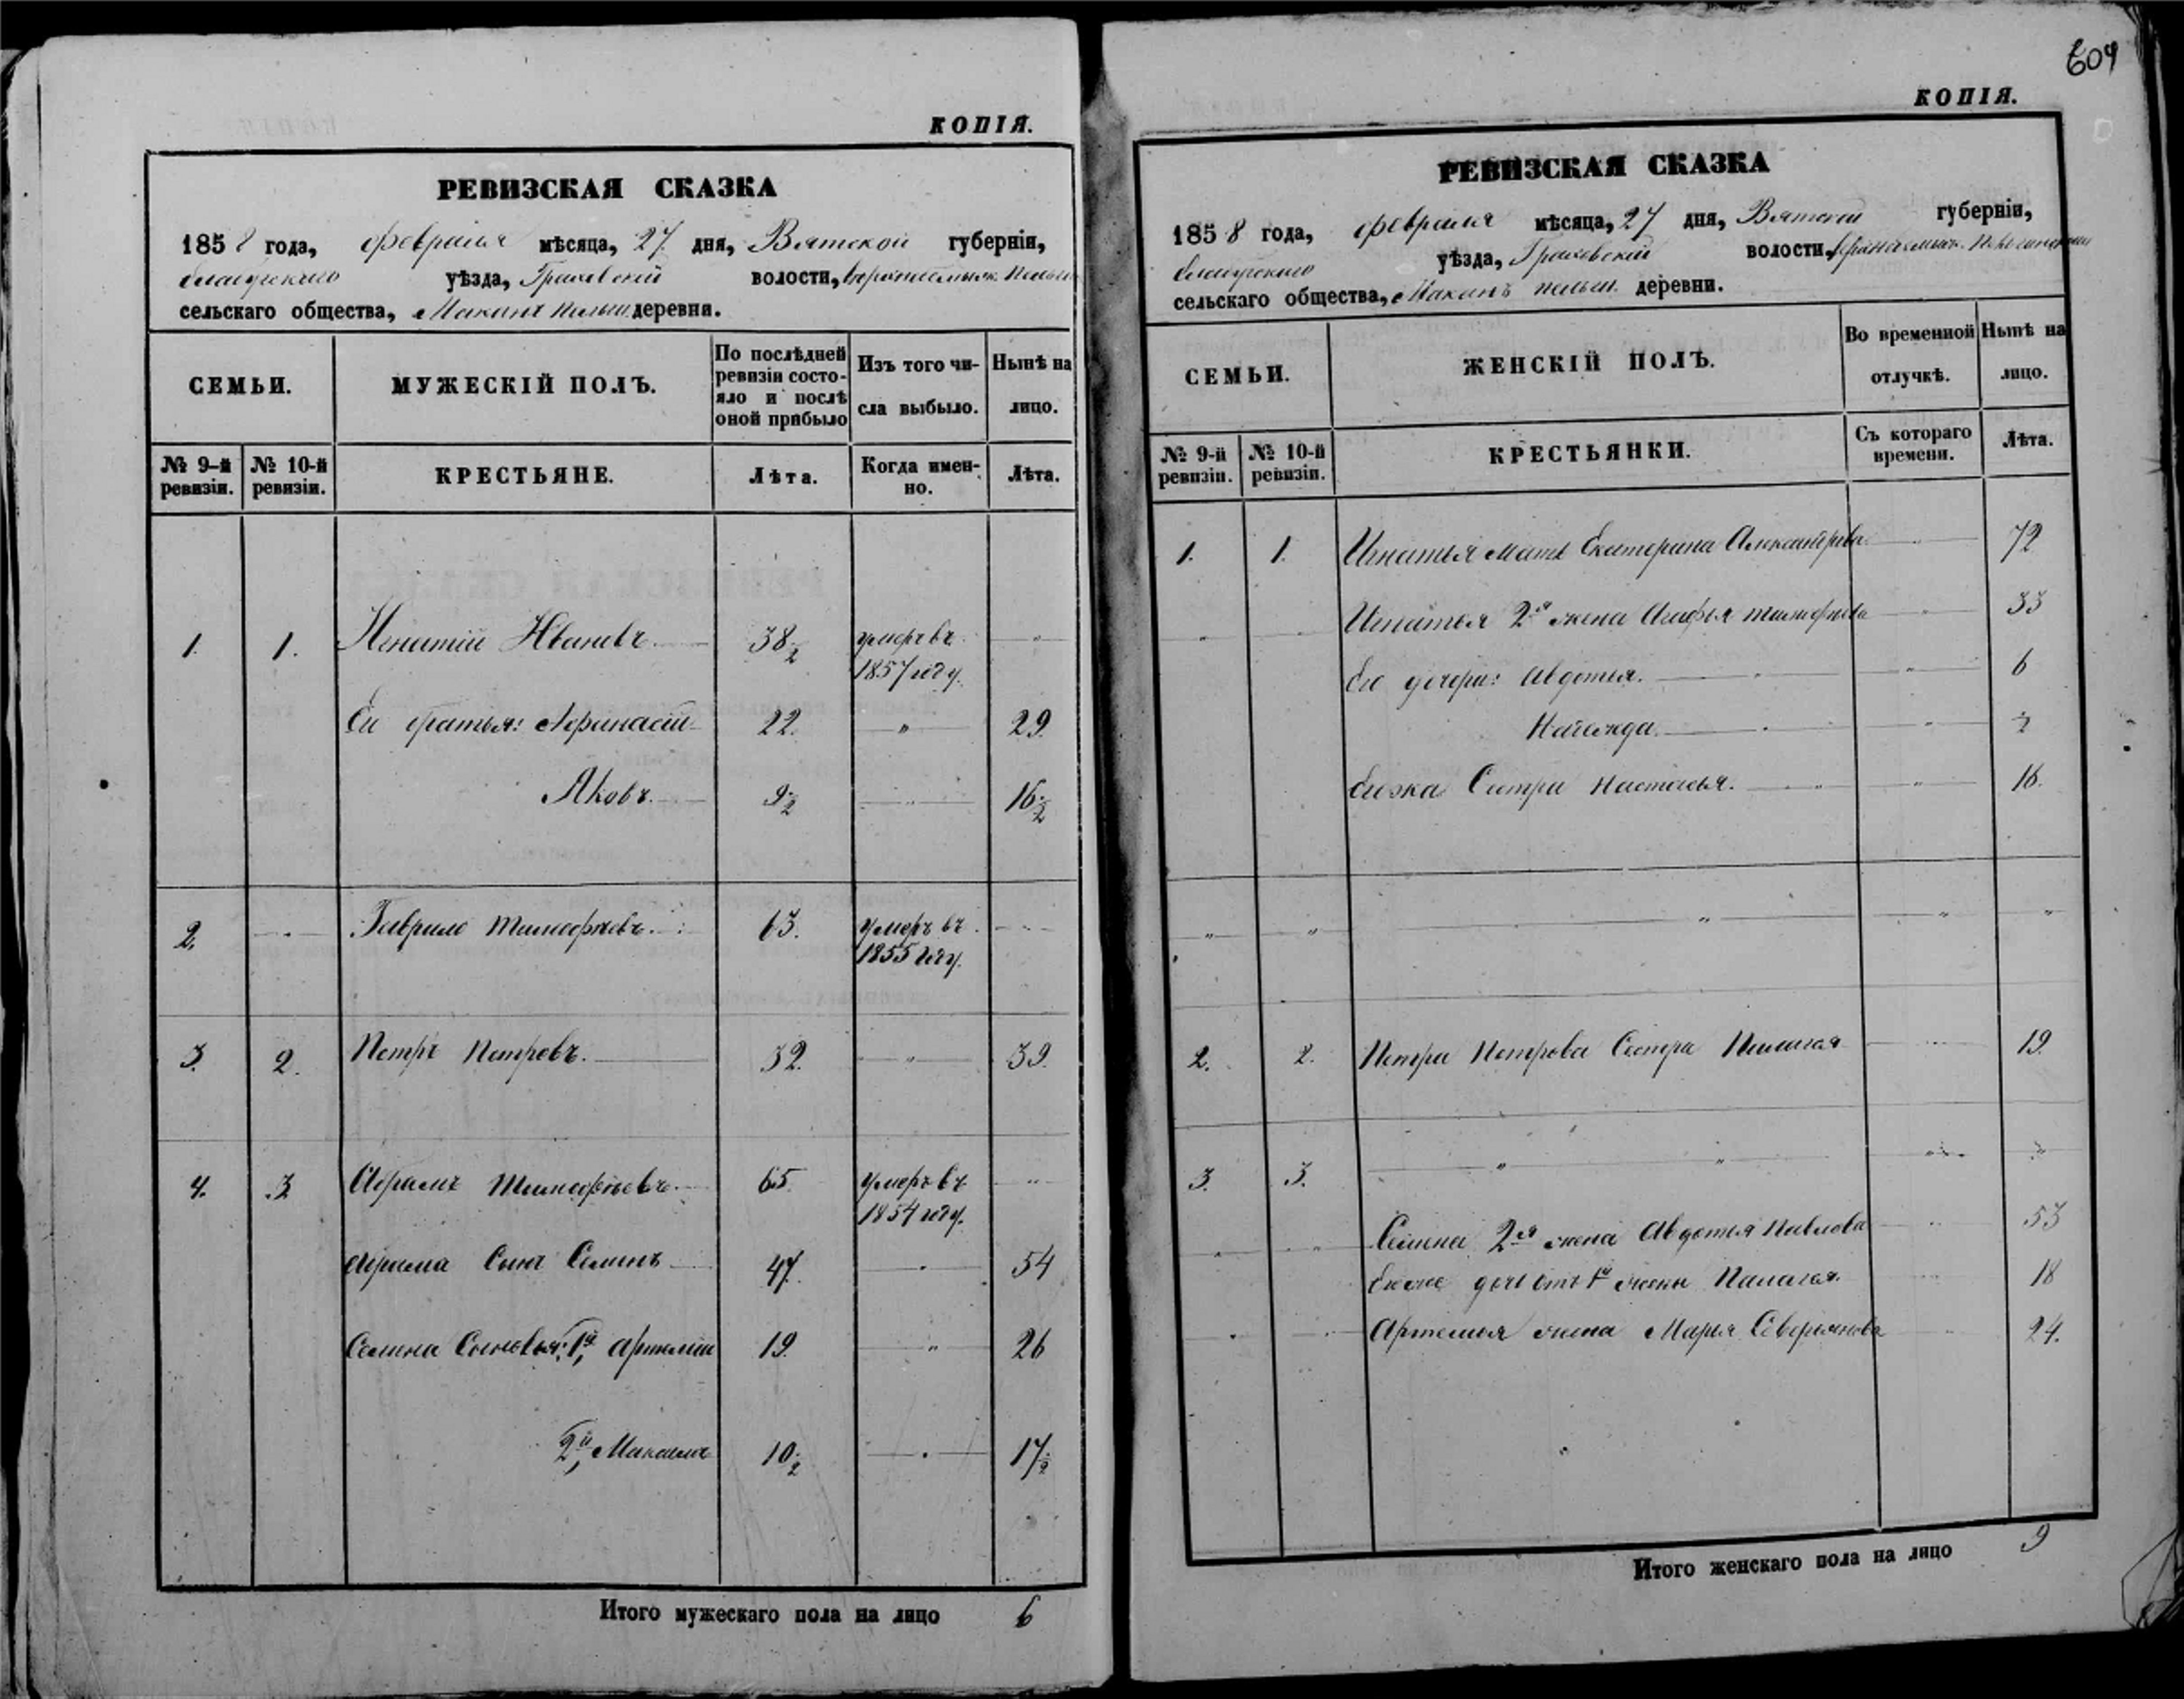 КОПІЯ.
РЕВИЗСКАЯ СКАЗКА
1858 года, февраля мѣсяца, 27 дня, Вятской губерніи,
елабужскаго уѣзда, Граховской волости,
сельскаго общества, деревни.
СЕМЬИ. МУЖЕСКІЙ ПОЛЪ. По послѣдней ревизіи состояло и послѣ оной прибыло Изъ того числа выбыло. Нынѣ на лицо.
№ 9-й ревизіи. № 10-й ревизіи. КРЕСТЬЯНЕ. Лѣта. Когда именно. Лѣта.
1. 1. Игнатій Ивановъ. 38 1/2 умеръ въ 1857 году. "
Его братья: Афанасій 22. " 29.
Яковъ. 9 1/2 " 16 1/2
2. " Гаврило Тимофѣевъ. 63. умеръ въ 1855 году. "
3. 2. Петръ Петровъ. 32. " 39.
4. 3 Абрамъ Тимофѣевъ. 65 умеръ въ 1854 году. "
Абрама Сынъ Семенъ 47. " 54
Семена Сыновья: 1й, Артемій 19. " 26
2й, Максимъ 10 1/2 " 17 1/2
Итого мужескаго пола на лицо 6
609
КОПІЯ.
РЕВИЗСКАЯ СКАЗКА
1858 года, февраля мѣсяца, 27 дня, Вятской губерніи,
елабужскаго уѣзда, Граховской волости,
сельскаго общества, деревни.
СЕМЬИ. ЖЕНСКІЙ ПОЛЪ. Во временной отлучкѣ. Нынѣ на лицо.
№ 9-й ревизіи. № 10-й ревизіи. КРЕСТЬЯНКИ. Съ котораго времени. Лѣта.
1. 1. Игнатья мать Екатерина Александрова " 72
" " Игнатья 2я жена Агафья Тимофѣева " 33
Его дочери: Авдотья. " 6
Надежда. "
Егожа Сестра Настасья. " 16.
" " " " "
2. 2. Петра Петрова Сестра Палагея " 19.
3. 3. " " " "
" " Семена 2я жена Авдотья Павлова " 53
Егоже дочь отъ 1й жены Палагея. " 18
" " Артемья жена Марья Северьянова " 24.
Итого женскаго пола на лицо 9